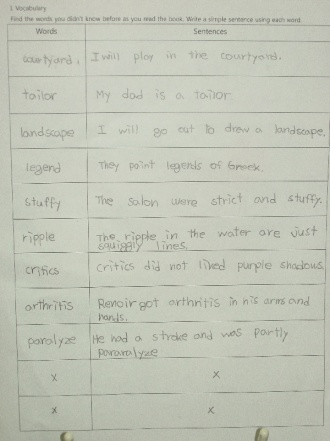 1. Vocabulary
Find the words you didn't know before as you read the book. Write a simple sentence using each word.
Words Sentences
courtyard. I will play in the courtyard.
tailor My dad is a tailor
landscape I will go out to drew a landscape.
legend They paint legends of Greek.
stuffy The salon were strict and stuffy.
ripple The ripple in the water are just
squiggly lines.
critics Critics did not liked purple shadows.
arthritis Renoir got arthritis in his arms and
hands.
paralyze He had a stroke and was partly
pararalyze
x x
x x